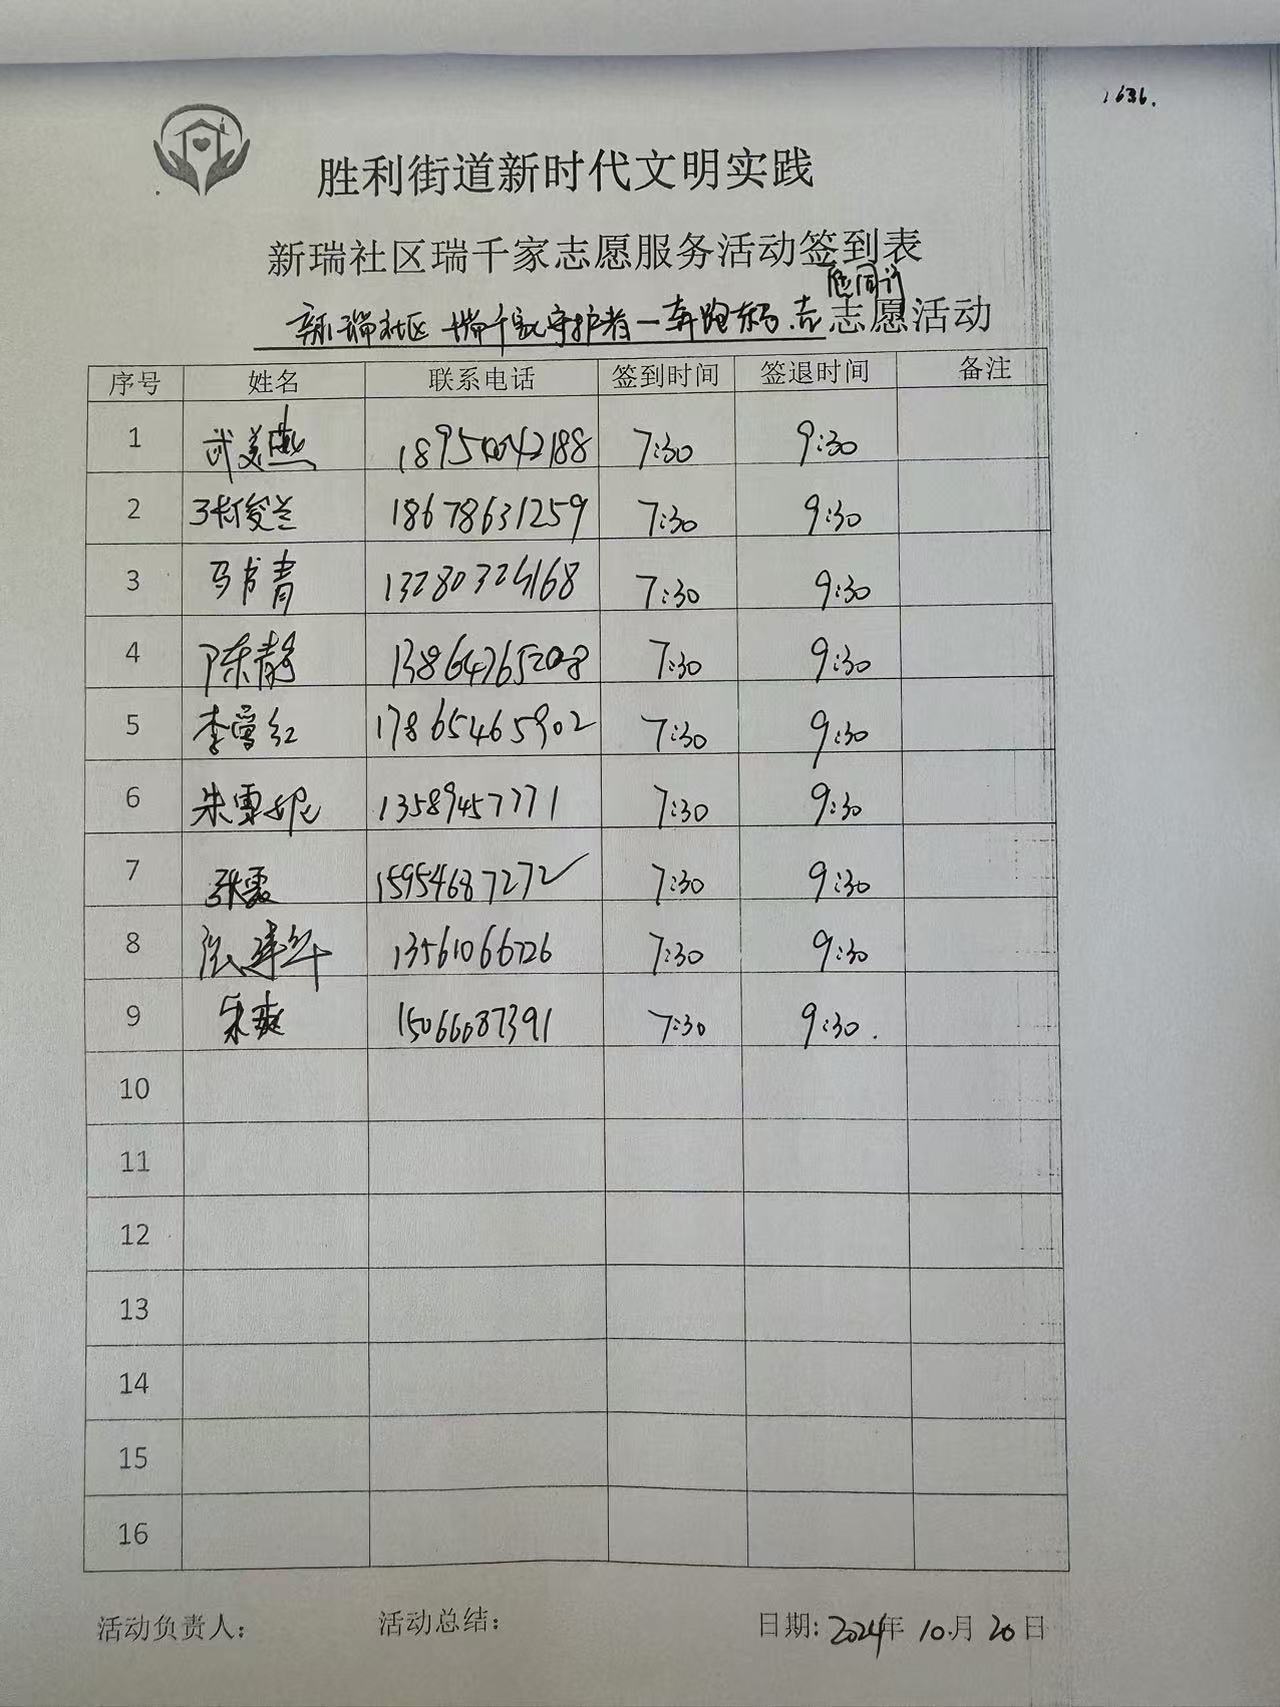 1636.
胜利街道新时代文明实践
新瑞社区瑞千家志愿服务活动签到表
新瑞社区 瑞千家守护者一奔跑东马.志愿同行志愿活动
序号 姓名 联系电话 签到时间 签退时间 备注
1 武美燕 18950042188 7:30 9:30
2 俊兰 18678631259 7:30 9:30
3 马青 13280324168 7:30 9:30
4 陈静 13864765208 7:30 9:30
5 李雪红 17865465902 7:30 9:30
6 朱雪妮 13589457771 7:30 9:30
7 张霞 15954687272 7:30 9:30
8 13561066726 7:30 9:30
9 朱爽 15066087391 7:30 9:30.
10
11
12
13
14
15
16
活动负责人: 活动总结: 日期: 2024年 10月 20日